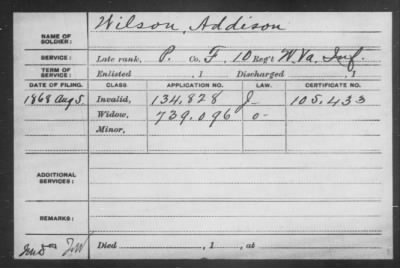 NAME OF SOLDIER: Wilson, Addison
SERVICE: Late rank, P. Co. F, 10 Reg't W. Va. Inf.
TERM OF SERVICE: Enlisted , 1 Discharged , 1
DATE OF FILING. CLASS. APPLICATION NO. LAW. CERTIFICATE NO.
1868 Aug 5. Invalid, 134.828 J 105.433
Widow, 739.096 o-
Minor,
ADDITIONAL SERVICES:
REMARKS:
Died , 1 , at